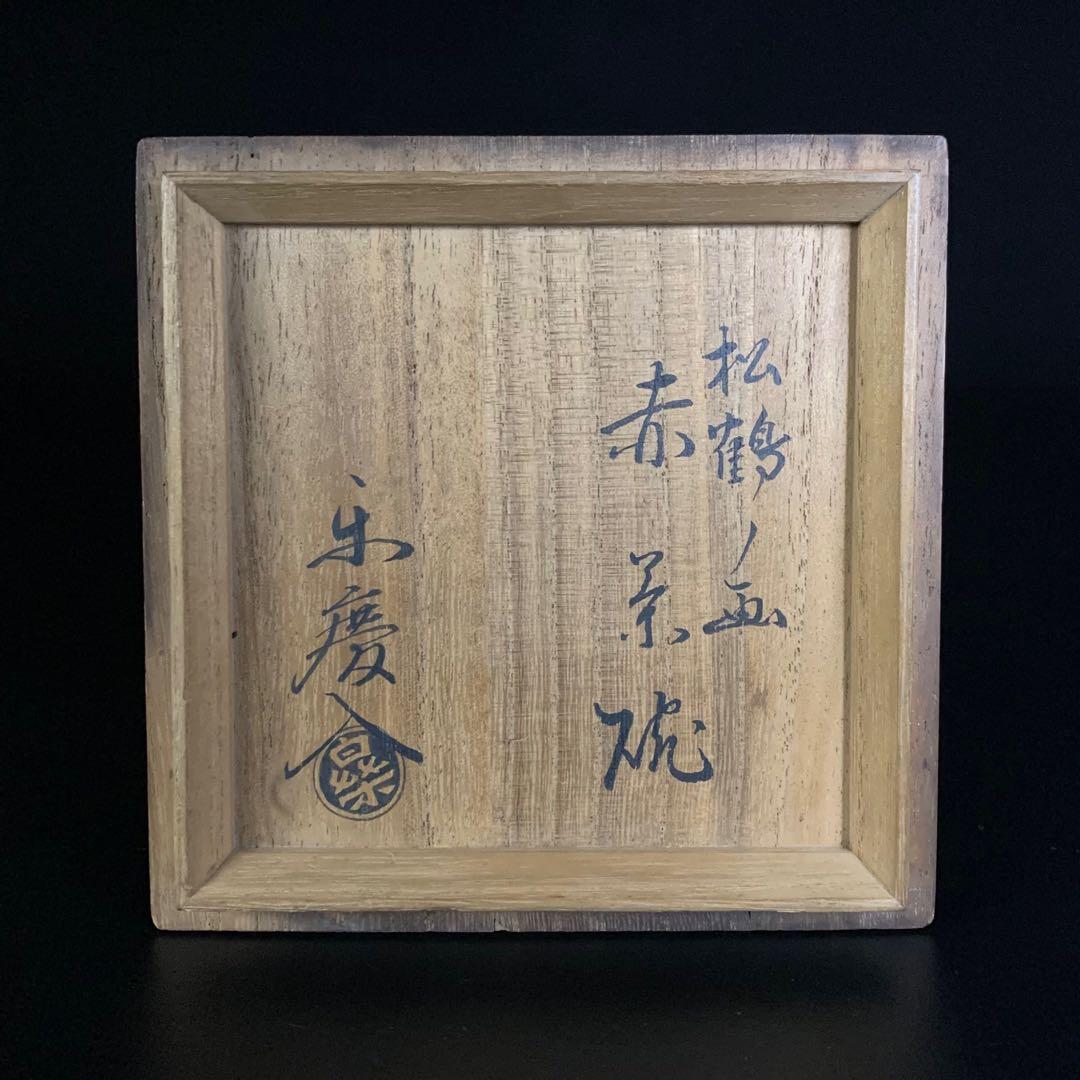 松鶴ノ画
赤茶碗
楽慶入
樂